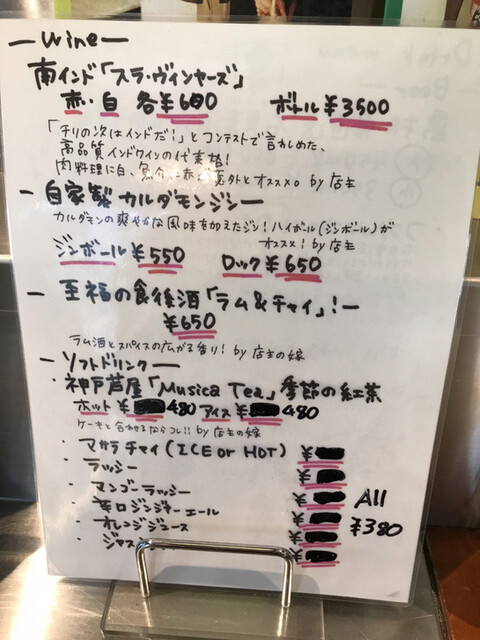 ーWineー
南インド「スラ・ヴィンヤーズ」
赤・白 各¥600 ボトル¥3500
「チリの次はインドだ!」とコンテストで言わしめた、
高品質インドワインの代表格!
肉料理に白、魚介に赤が意外とオススメ。by店主
ー自家製カルダモンジンー
カルダモンの爽やかな風味を加えたジン!ハイボール(ジンボール)が
オススメ!by店主
ジンボール¥550 ロック¥650
ー至福の食後酒「ラム&チャイ」!ー
¥650
ラム酒とスパイスの広がる香り!by店主の嫁
ーソフトドリンクー
・神戸芦屋「Musica Tea」季節の紅茶
ホット¥480 アイス¥480
ケーキと合わせるならコレ!!by店主の嫁
・マサラチャイ(ICE or HOT) ¥
・ラッシー ¥
・マンゴーラッシー ¥
・辛口ジンジャーエール ¥
・オレンジジュース ¥
・ジャス ¥
All
¥380